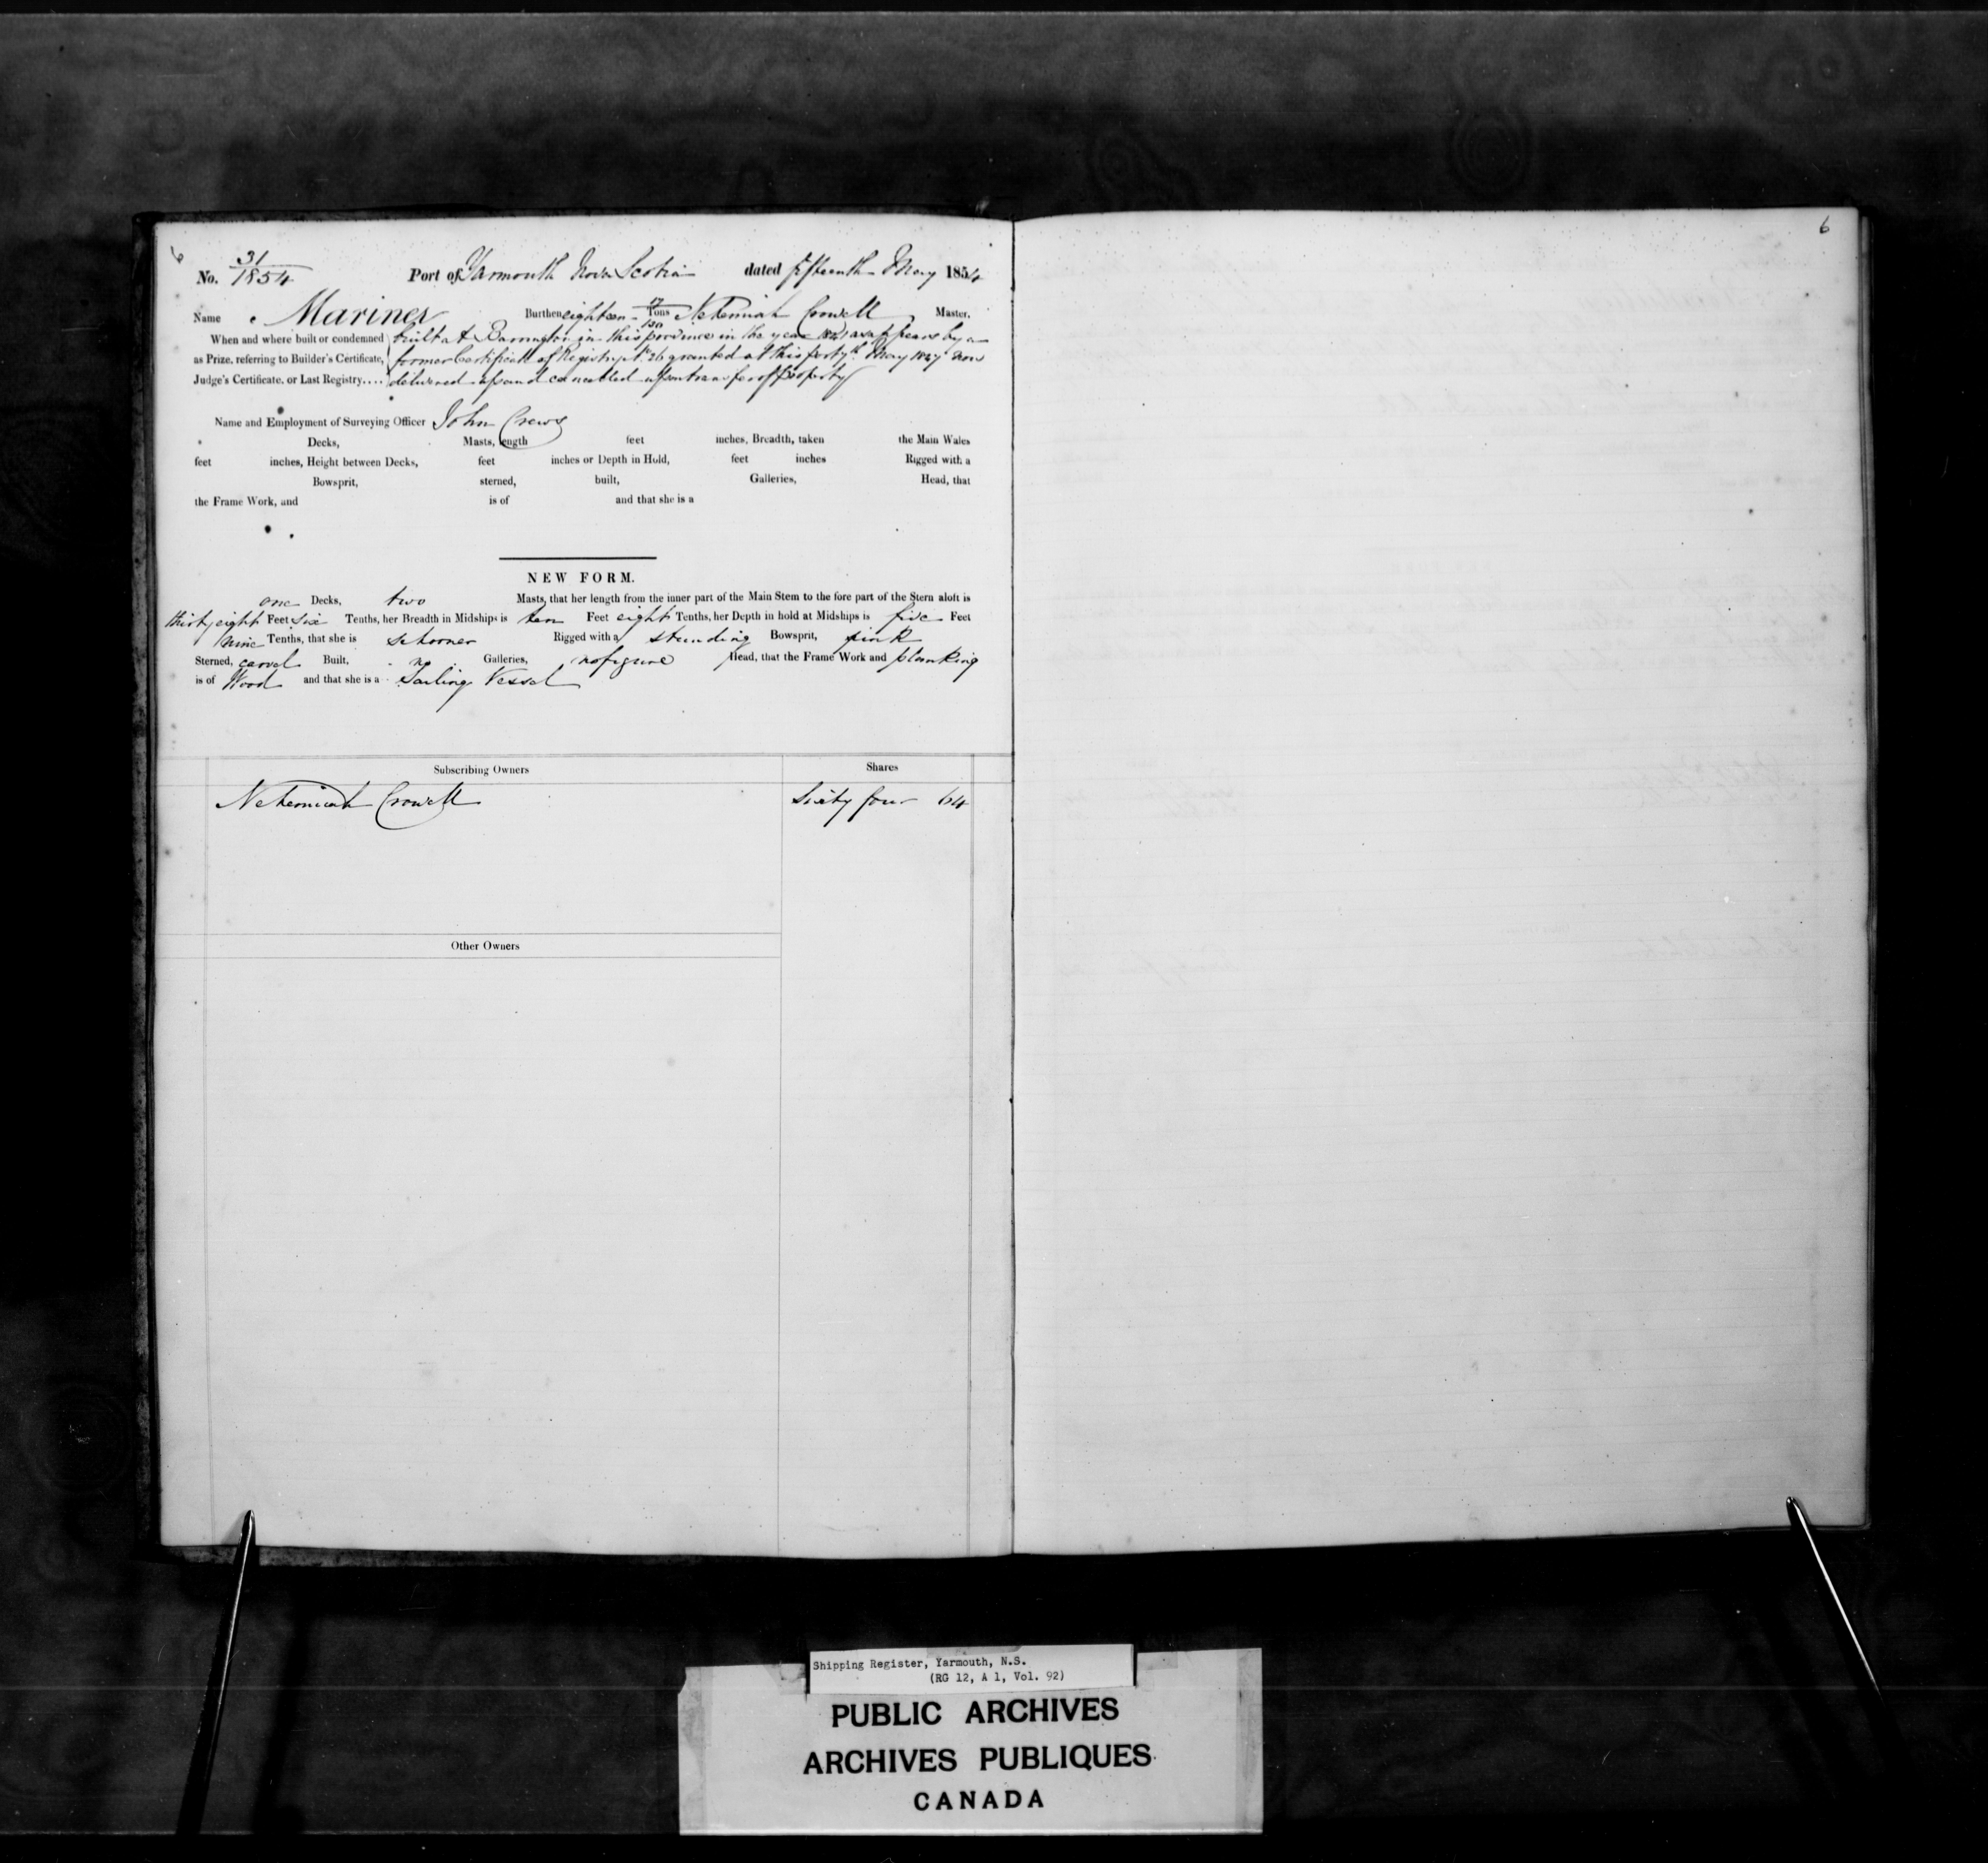 6
No. 31/1854 Port of Yarmouth Nova Scotia dated fifteenth May 1854
Name Mariner Burthen eighteen Tons Nehemiah Crowell Master.
When and where built or condemned built at Barrington in this province in the year as appears by a
as Prize, referring to Builder's Certificate, former Certificate of Registry No 26 granted at this port May now
Judge's Certificate, or Last Registry.... delivered up and cancelled upon transfer of Property
Name and Employment of Surveying Officer John Crews
Decks, Masts, Length feet inches, Breadth, taken the Main Wales
feet inches, Height between Decks, feet inches or Depth in Hold, feet inches Rigged with a
Bowsprit, sterned, built, Galleries, Head, that
the Frame Work, and is of and that she is a
NEW FORM.
one Decks, two Masts, that her length from the inner part of the Main Stem to the fore part of the Stern aloft is
thirty eight Feet six Tenths, her Breadth in Midships is ten Feet eight Tenths, her Depth in hold at Midships is five Feet
nine Tenths, that she is schooner Rigged with a standing Bowsprit, pink
Sterned, carvel Built, no Galleries, no figure Head, that the Frame Work and planking
is of Wood and that she is a Sailing Vessel
Subscribing Owners Shares
Nehemiah Crowell Sixty four 64
Other Owners
6
Shipping Register, Yarmouth, N.S.
(RG 12, A 1, Vol. 92)
PUBLIC ARCHIVES
ARCHIVES PUBLIQUES
CANADA